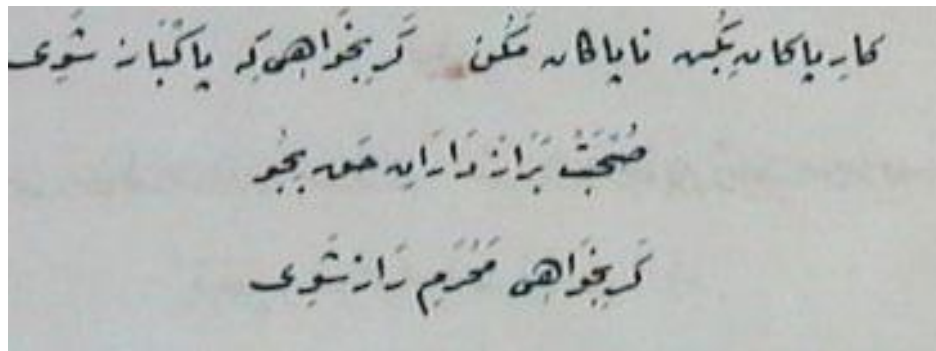 کارِ پاکان بِکُن ناپاکان مَکُن کَر بِخَواهِی کِه پاکْبَاز شَوِی
صُحْبَتْ بَرَازْدَارَانِ حَق بِجُو
کَر بِخَواهِی مَحْرَمِ رَاز شَوِی